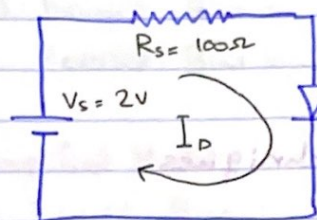 Rs = 100Ω
Vs = 2V
ID